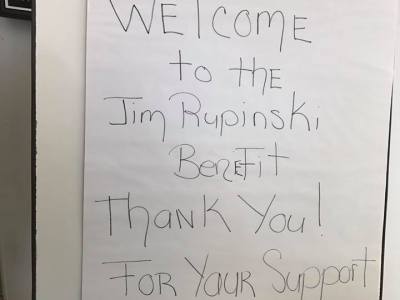 WElcomE
to thE
Jim Rupinski
BenEFit
ThANK You!
FOR YOUR Support